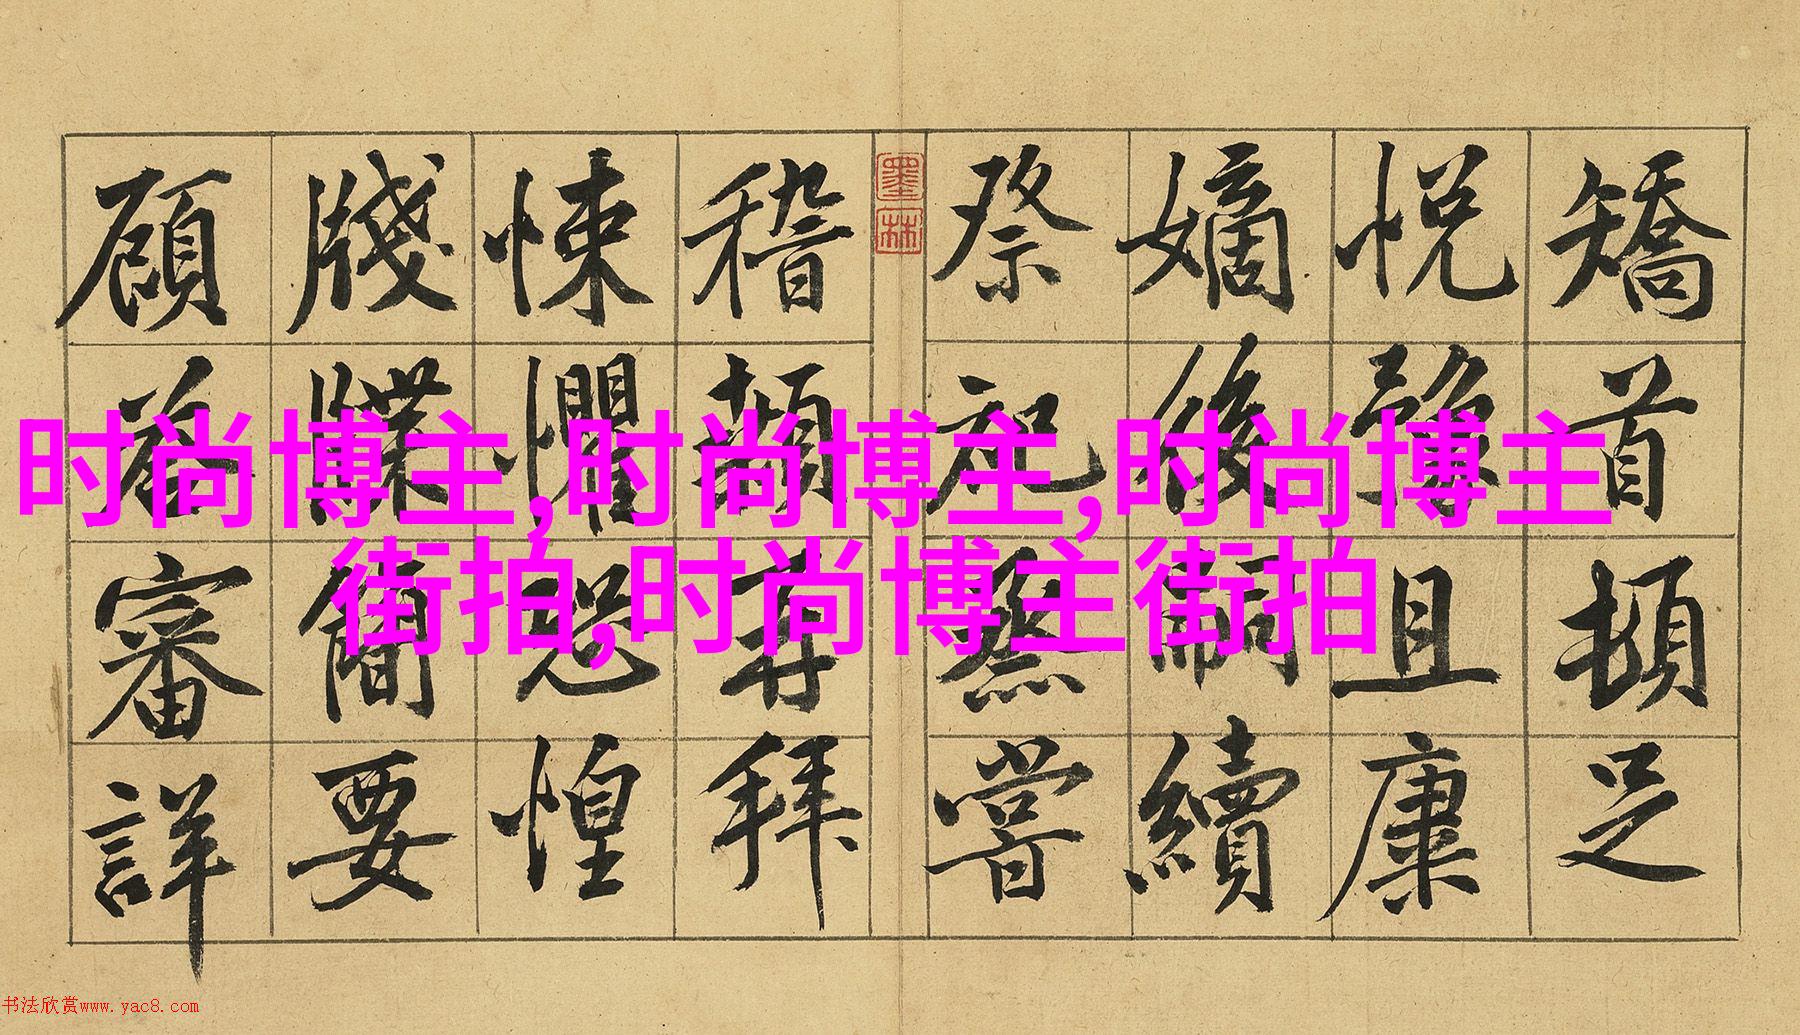 矯首頓足
悅豫且康
嫡後嗣續
祭祀蒸嘗
墨林
稽顙再拜
悚懼恐惶
牋牒簡要
顧答審詳
时尚博主,时尚博主,时尚博主
街拍,时尚博主街拍
书法欣赏www.yac8.com